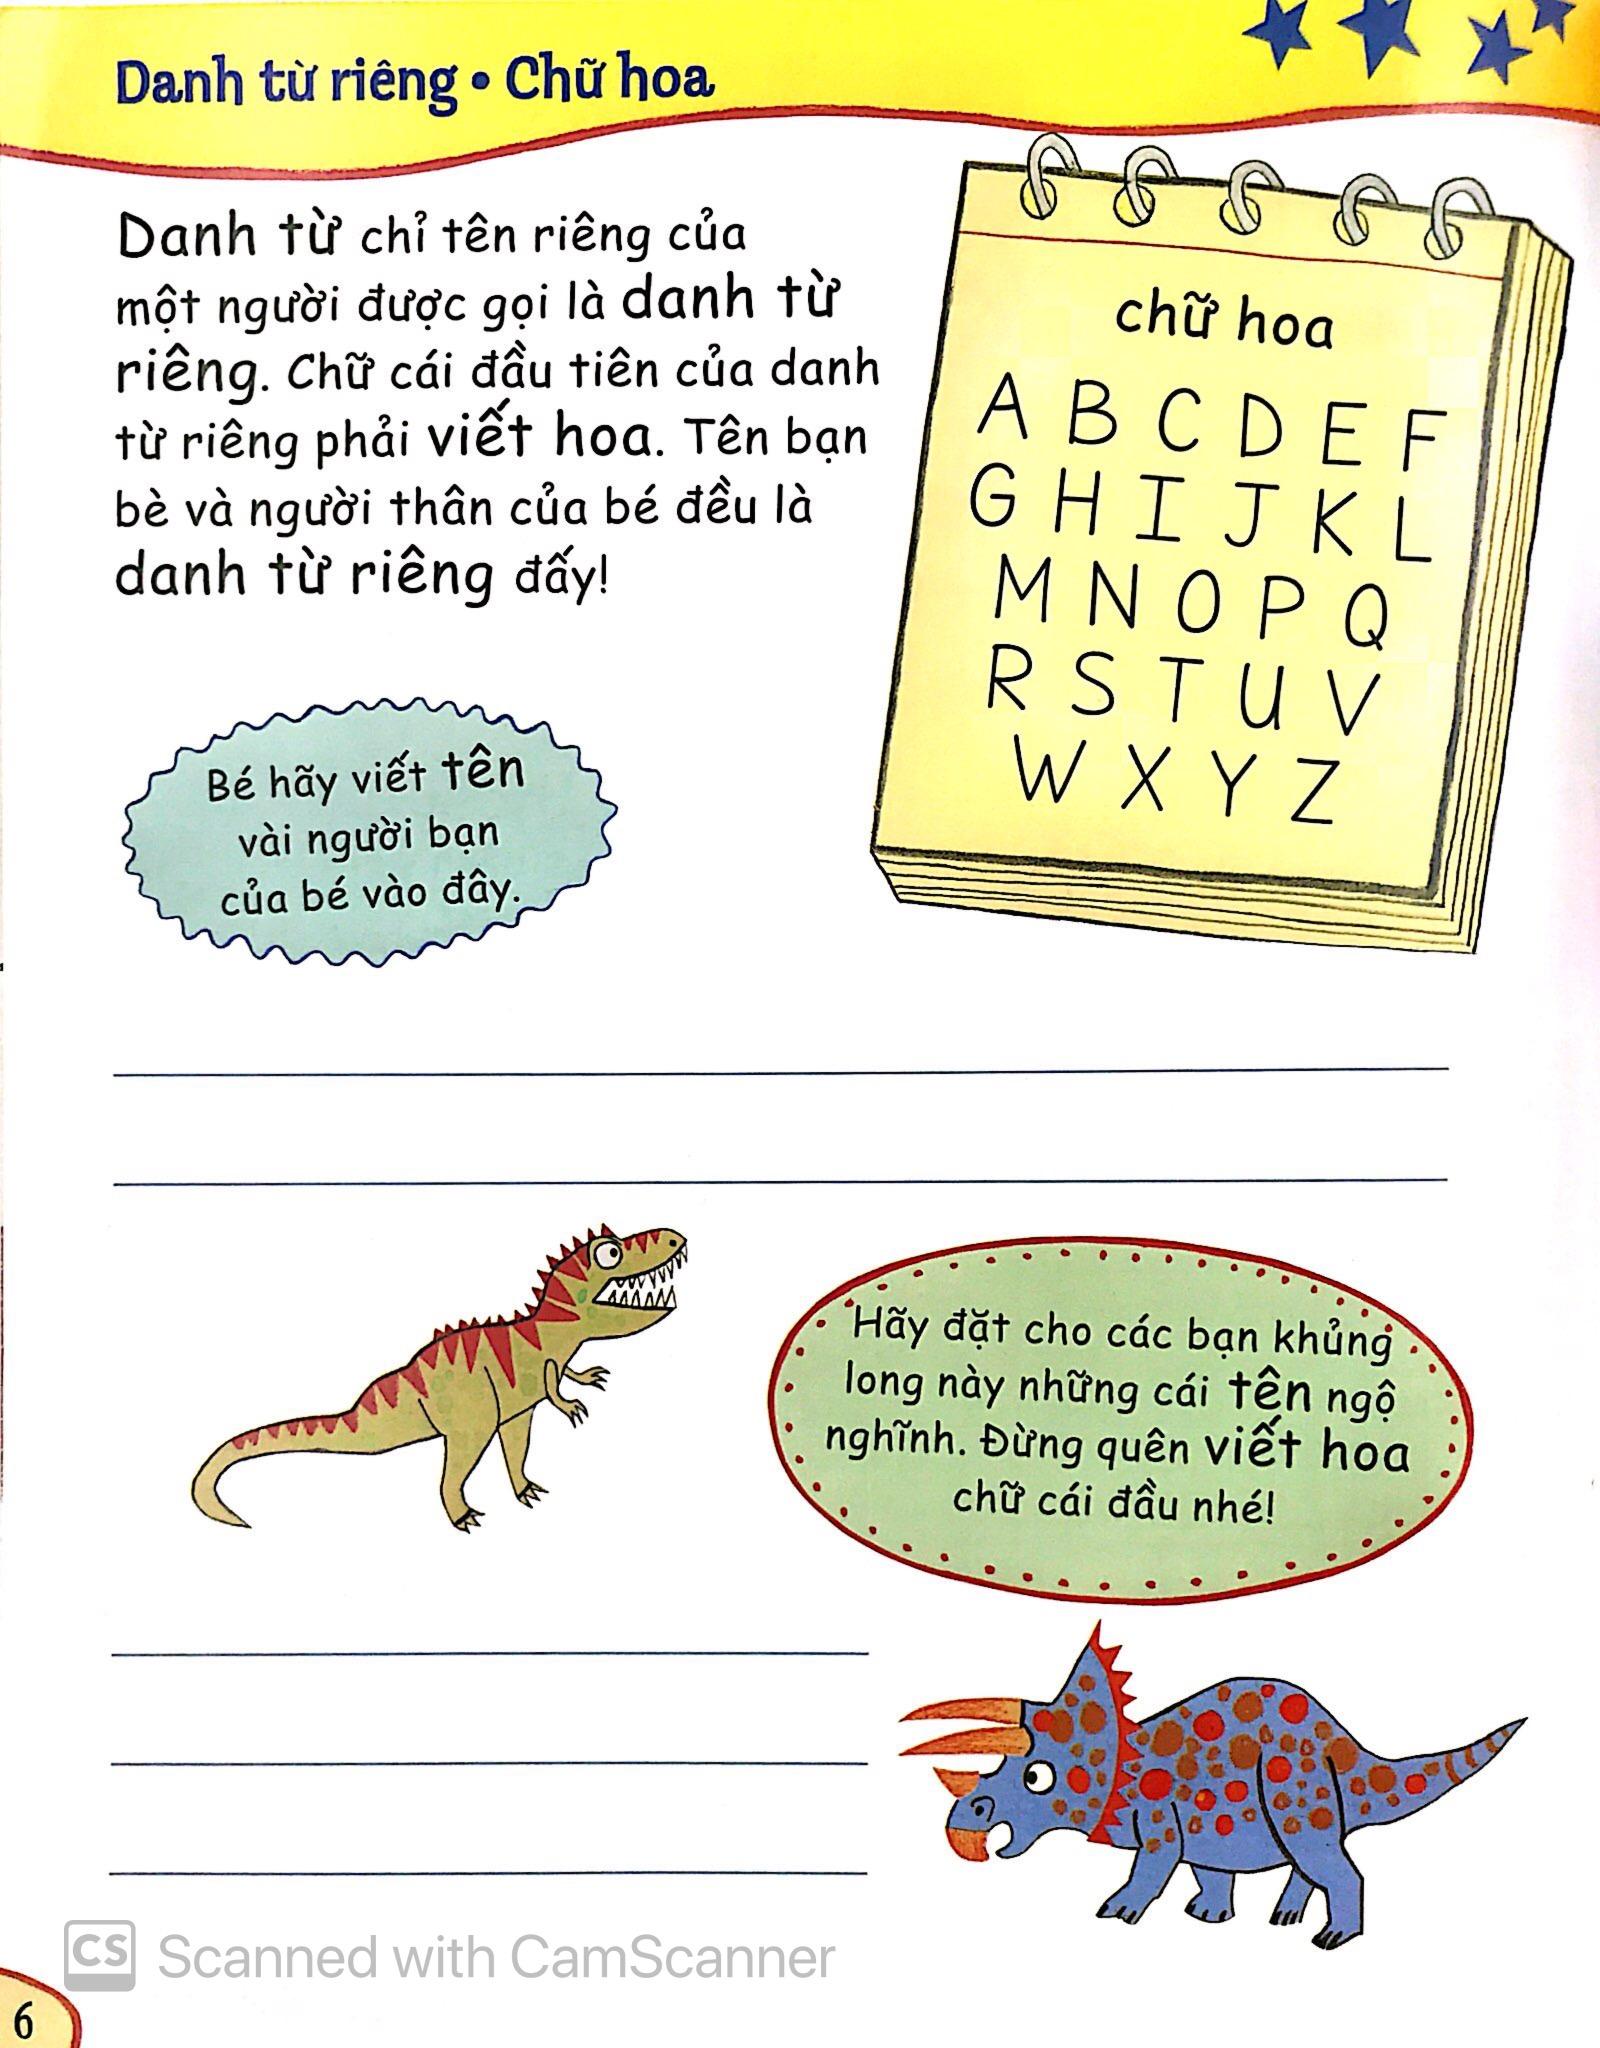 Danh từ riêng • Chữ hoa
Danh từ chỉ tên riêng của
một người được gọi là danh từ
riêng. Chữ cái đầu tiên của danh
từ riêng phải viết hoa. Tên bạn
bè và người thân của bé đều là
danh từ riêng đấy!
chữ hoa
A B C D E F
G H I J K L
M N O P Q
R S T U V
W X Y Z
Bé hãy viết tên
vài người bạn
của bé vào đây.
Hãy đặt cho các bạn khủng
long này những cái tên ngộ
nghĩnh. Đừng quên viết hoa
chữ cái đầu nhé!
CS Scanned with CamScanner
6